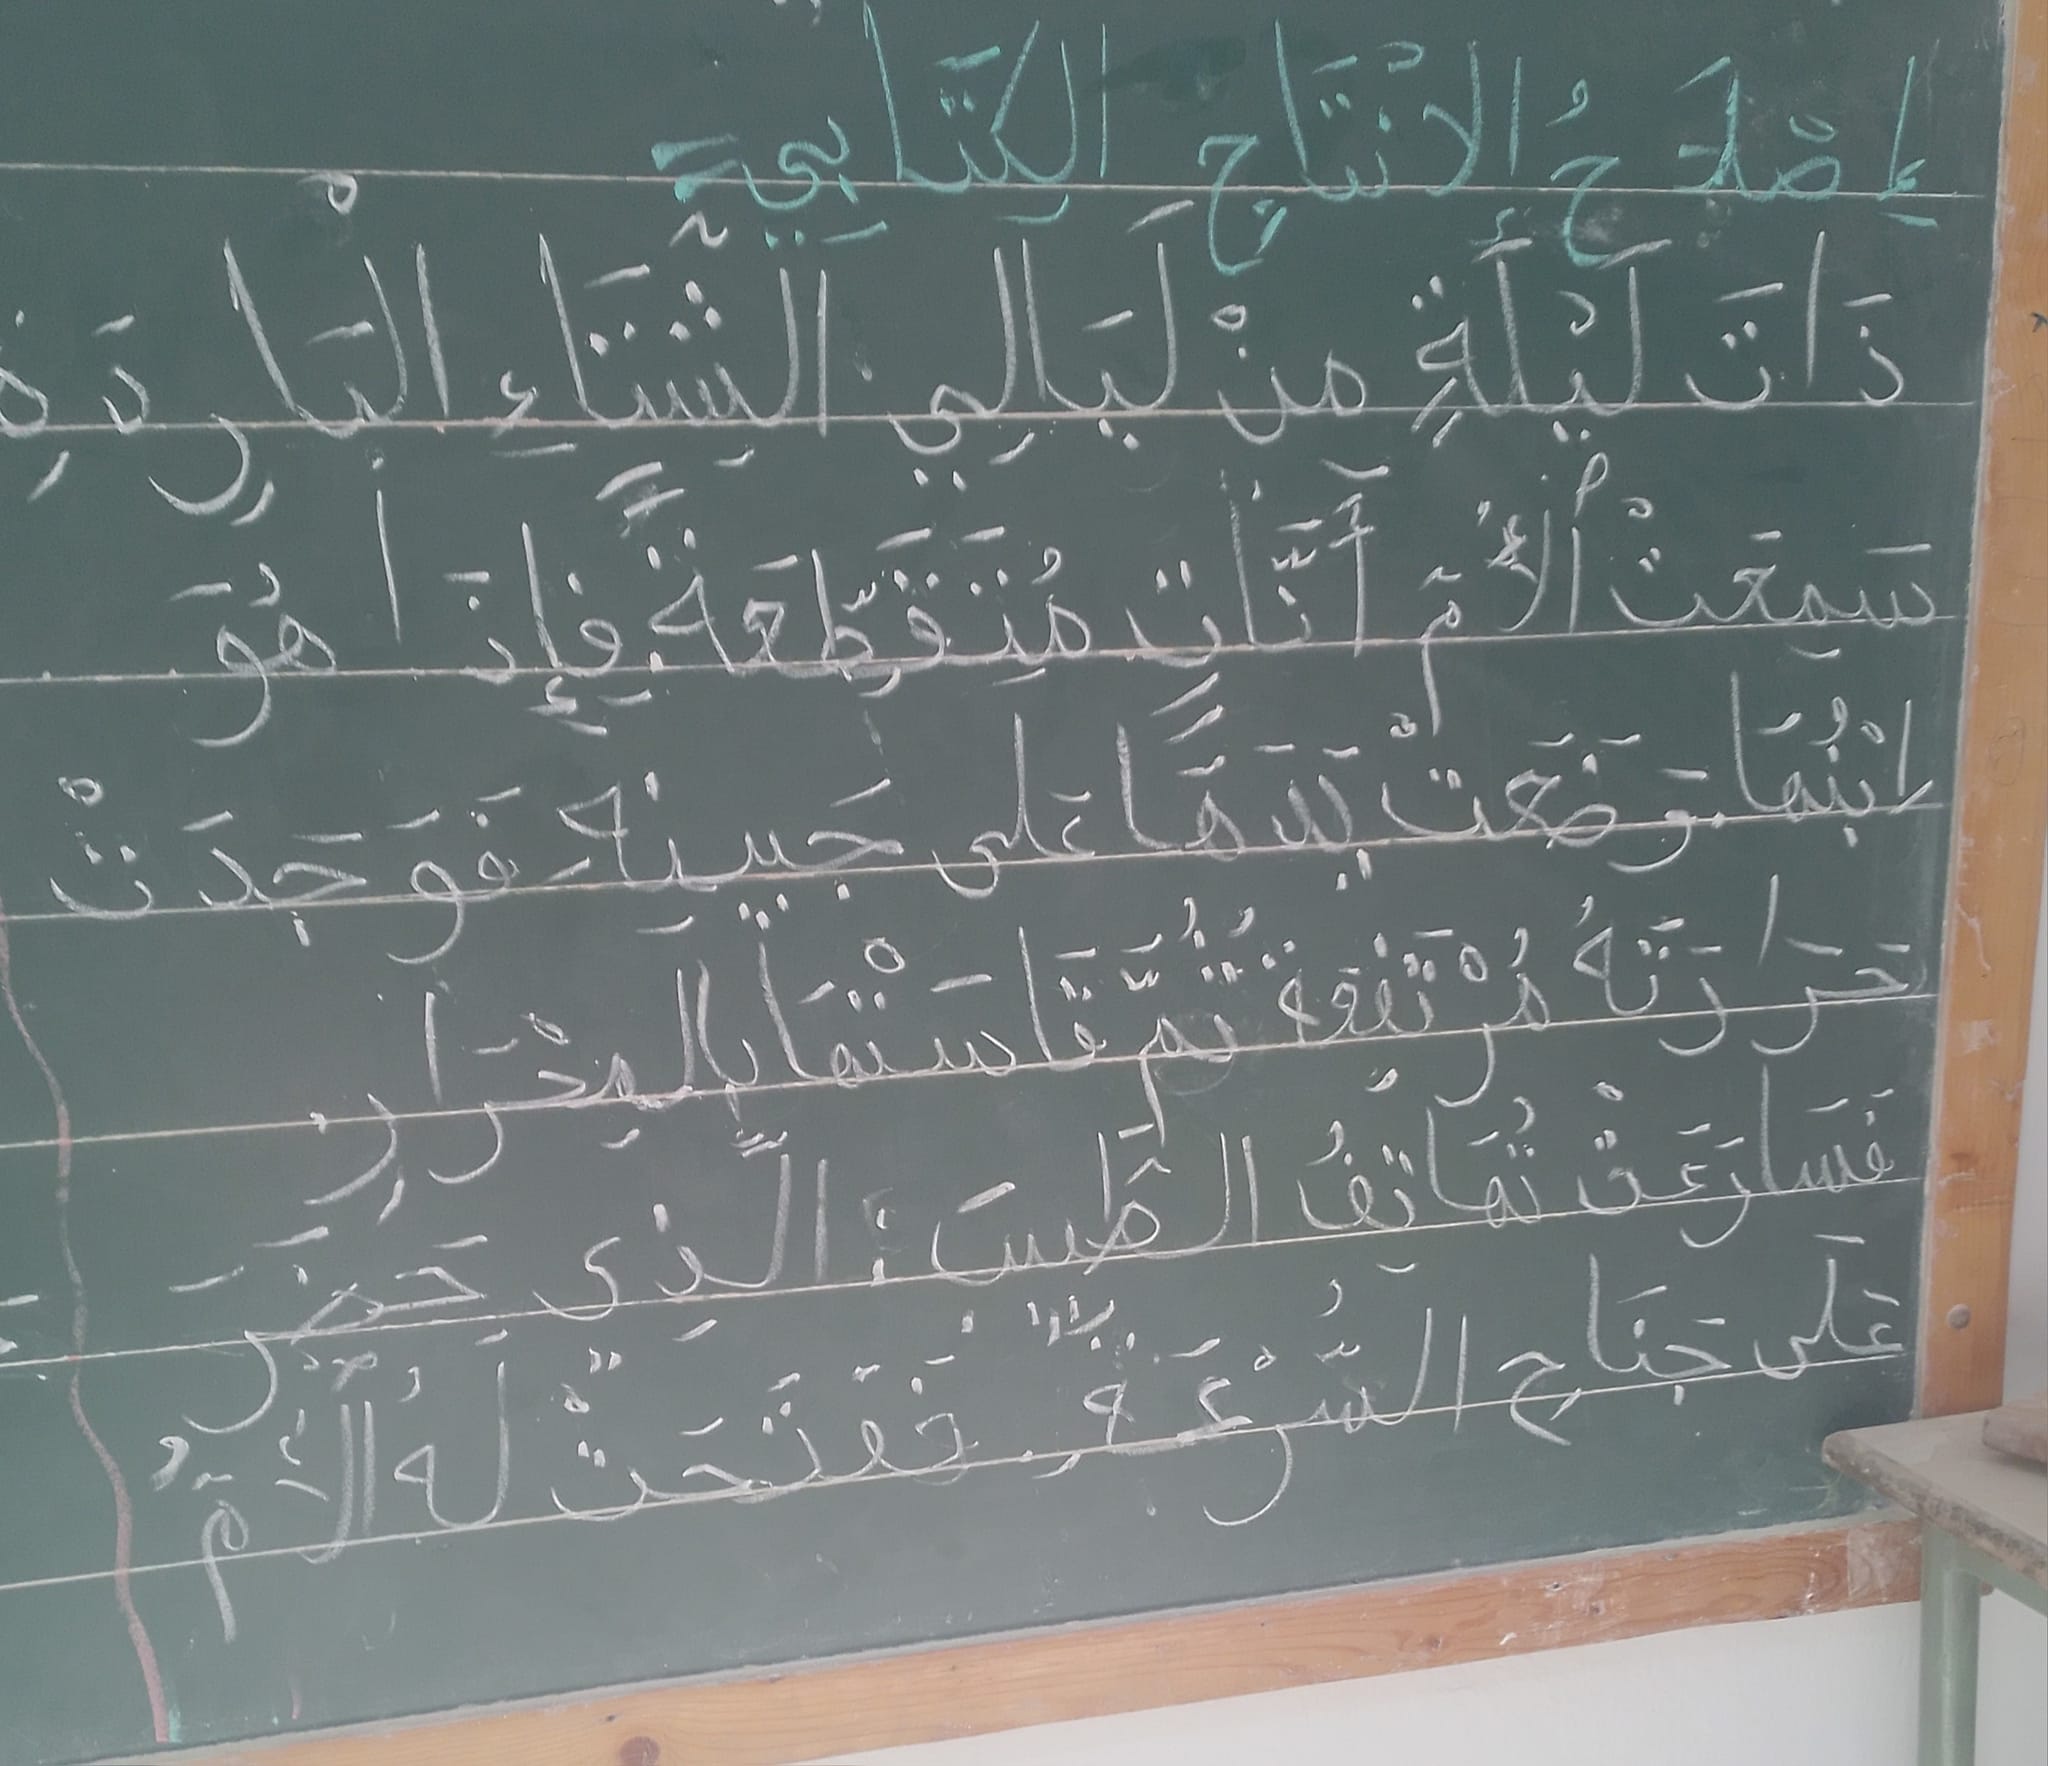 إِصْلَاحُ الانْتَاجِ الكِتَابِي
ذَاتَ لَيْلَةٍ مِنْ لَيَالِي الشِّتَاءِ البَارِدَةِ
سَمِعَتْ الأُمُّ أَنَّاتٍ مُتَقَطِّعَةً فَإِذَا هُوَ
ابْنُهَا. وَضَعَتْ يَدَهَا عَلَى جَبِينِهِ فَوَجَدَتْ
حَرَارَتَهُ مُرْتَفِعَةً ثُمَّ قَاسَتْهَا بِالمِحْرَارِ
فَسَارَعَتْ تُهَاتِفُ الطَّبِيبَ الَّذِي حَضَرَ
عَلَى جَنَاحِ السُّرْعَةِ. فَفَتَحَتْ لَهُ الأُمُّ